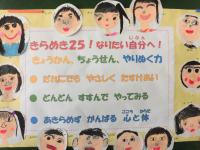 きらめき25!なりたい自分へ!
じぶん
きょうかん、ちょうせん、やりぬく力
だれにでも やさしく たすけあい
どんどん すすんで やってみる
こころ からだ
あきらめず がんばる 心と体